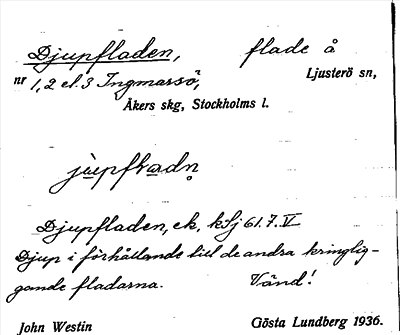 Djupfladen, flade å
nr 1, 2 el. 3 Ingmarsö, Ljusterö sn,
Åkers skg, Stockholms l.
Djupfladen, ek. kfj 61.7.V
Djup i förhållande till de andra kringlig-
gande fladarna. Vänd!
John Westin Gösta Lundberg 1936.